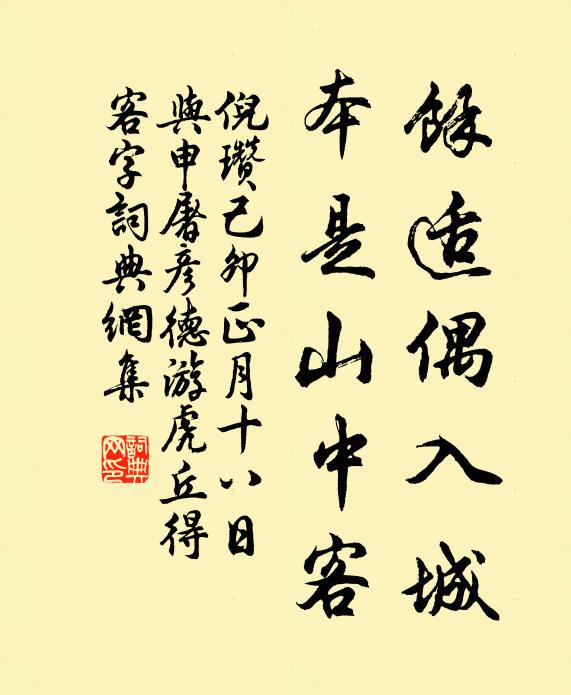 餘适偶入城
本是山中客
倪瓚己卯正月十八日
與申屠彥德游虎丘得
客字詞典網集
詞典
网印